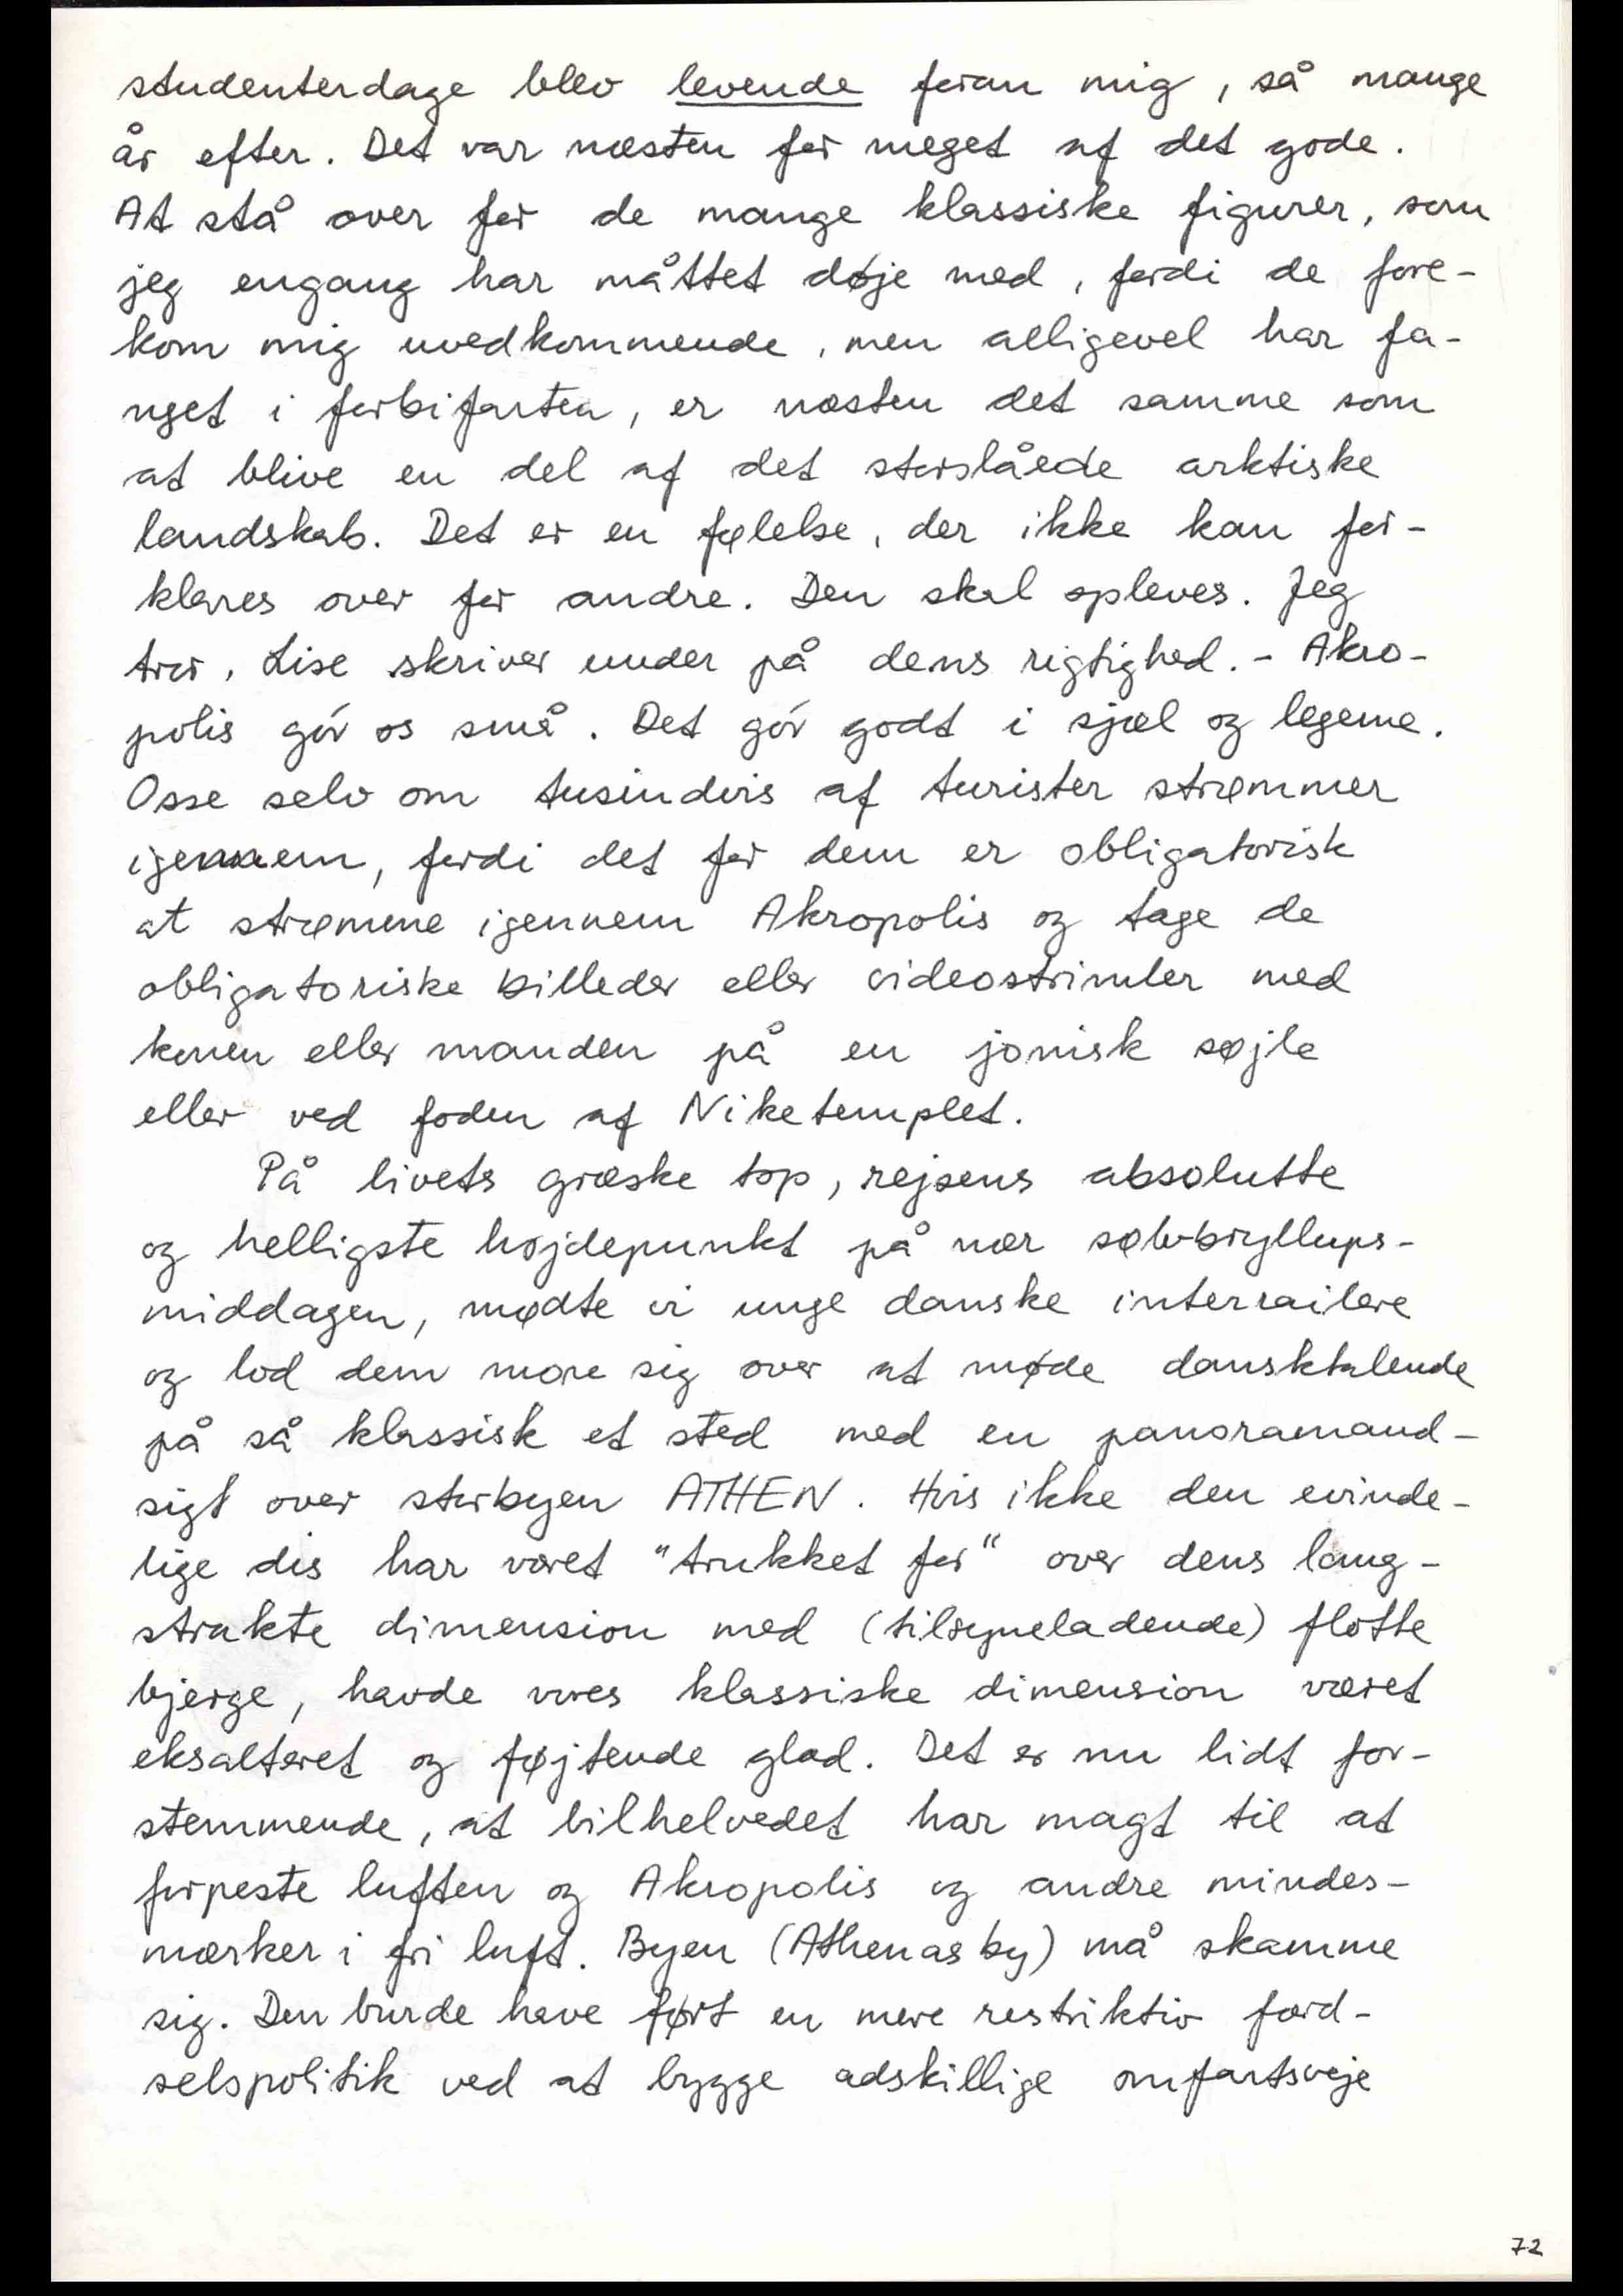 studenterdage blev levende foran mig, så mange
år efter. Det var næsten for meget af det gode.
At stå over for de mange klassiske figurer, som
jeg engang har måttet døje med, fordi de fore-
kom mig uvedkommende, men alligevel har fa-
nget i forbifarten, er næsten det samme som
at blive en del af det storslåede arktiske
landskab. Det er en følelse, der ikke kan for-
klares over for andre. Den skal opleves. Jeg
tror, Lise skriver under på dens rigtighed. - Akro-
polis gór os små. Det gór godt i sjæl og legeme.
Osse selv om tusindvis af turister strømmer
igennem, fordi det for dem er obligatorisk
at strømme igennem Akropolis og tage de
obligatoriske billeder eller videostrimler med
konen eller manden på en jonisk søjle
eller ved foden af Niketemplet.
På livets græske top, rejsens absolutte
og helligste højdepunkt på nær sølvbryllups-
middagen, mødte vi unge danske interrailere
og lod dem more sig over at møde dansktalende
på så klassisk et sted med en panoramaud-
sigt over storbyen ATHEN. Hvis ikke den evinde-
lige dis har været "trukket for" over dens lang-
strakte dimension med (tilsyneladende) flotte
bjerge, havde vores klassiske dimension været
eksalteret og føjtende glad. Det er nu lidt for-
stemmende, at bilhelvedet har magt til at
forpeste luften og Akropolis og andre mindes-
mærker i fri luft. Byen (Athenas by) må skamme
sig. Den burde have ført en mere restriktiv færd-
selspolitik ved at bygge adskillige omfartsveje
72